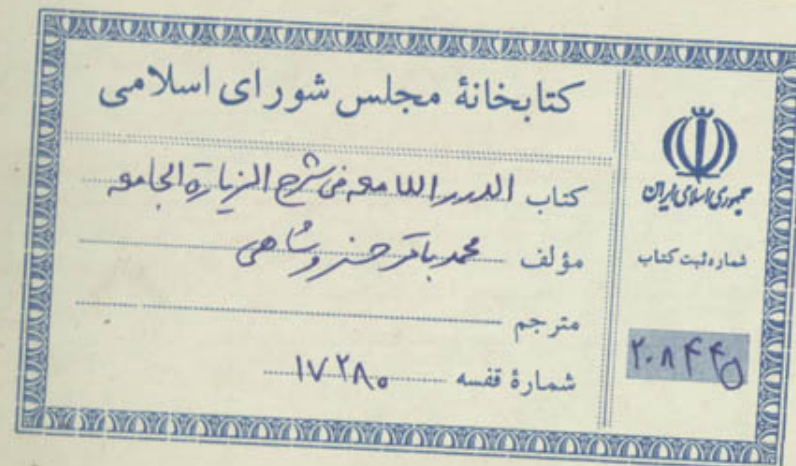 کتابخانهٔ مجلس شورای اسلامی
کتاب الدرر اللامعه فی شرح الزیارة الجامعه
مؤلف محمد باقر خسروشاهی
مترجم
شمارهٔ قفسه ۱۷۲۸۰
جمهوری اسلامی ایران
شماره ثبت کتاب
۲۰۸۴۴۵